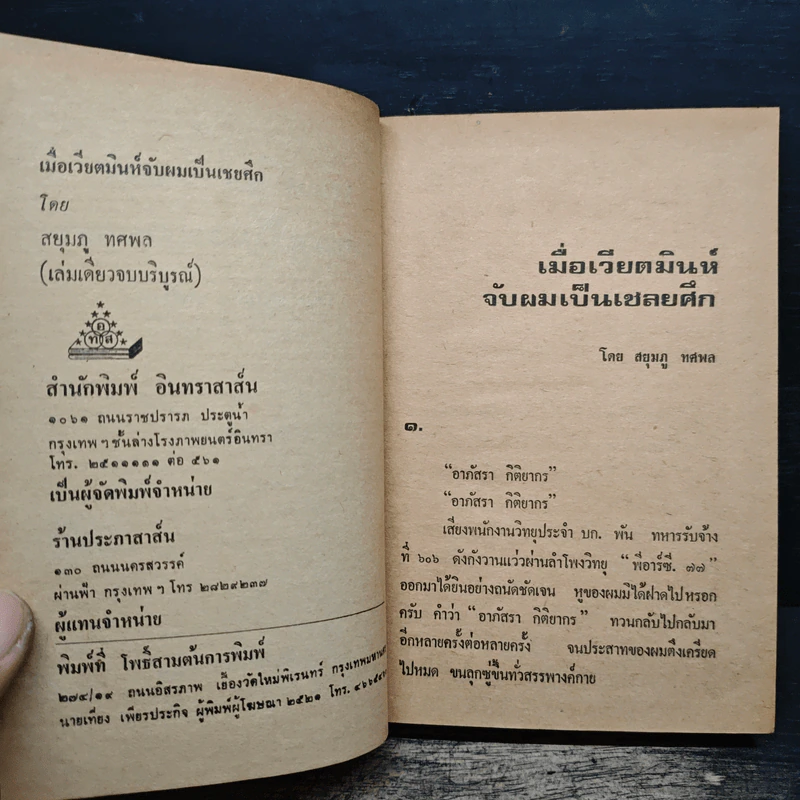 เมื่อเวียตมินห์จับผมเป็นเชยศึก
โดย
สยุมภู ทศพล
(เล่มเดียวจบบริบูรณ์)
อ
ท ส
สำนักพิมพ์ อินทราสาส์น
๑๐๖๑ ถนนราชปรารภ ประตูน้ำ
กรุงเทพ ฯ ชั้นล่างโรงภาพยนตร์อินทรา
โทร. ๒๕๑๑๑๑๑ ต่อ ๕๖๑
เป็นผู้จัดพิมพ์จำหน่าย
ร้านประภาสาส์น
๑๓๐ ถนนนครสวรรค์
ผ่านฟ้า กรุงเทพ ฯ โทร ๒๘๒๙๒๓๗
ผู้แทนจำหน่าย
พิมพ์ที่ โพธิ์สามต้นการพิมพ์
๒๗๔/๑๙ ถนนอิสรภาพ เยื้องวัดใหม่พิเรนทร์ กรุงเทพมหานคร
นายเที่ยง เพียรประกิจ ผู้พิมพ์ผู้โฆษณา ๒๕๒๑ โทร.
เมื่อเวียตมินห์
จับผมเป็นเชลยศึก
โดย สยุมภู ทศพล
๑.
“อาภัสรา กิติยากร”
“อาภัสรา กิติยากร”
เสียงพนักงานวิทยุประจำ บก. พัน ทหารรับจ้าง
ที่ ๖๐๖ ดังกังวานแว่วผ่านลำโพงวิทยุ “พีอาร์ซี. ๗๗”
ออกมาได้ยินอย่างถนัดชัดเจน หูของผมมิได้ฝาดไปหรอก
ครับ คำว่า “อาภัสรา กิติยากร” ทวนกลับไปกลับมา
อีกหลายครั้งต่อหลายครั้ง จนประสาทของผมตึงเครียด
ไปหมด ขนลุกซู่ขึ้นทั่วสรรพางค์กาย